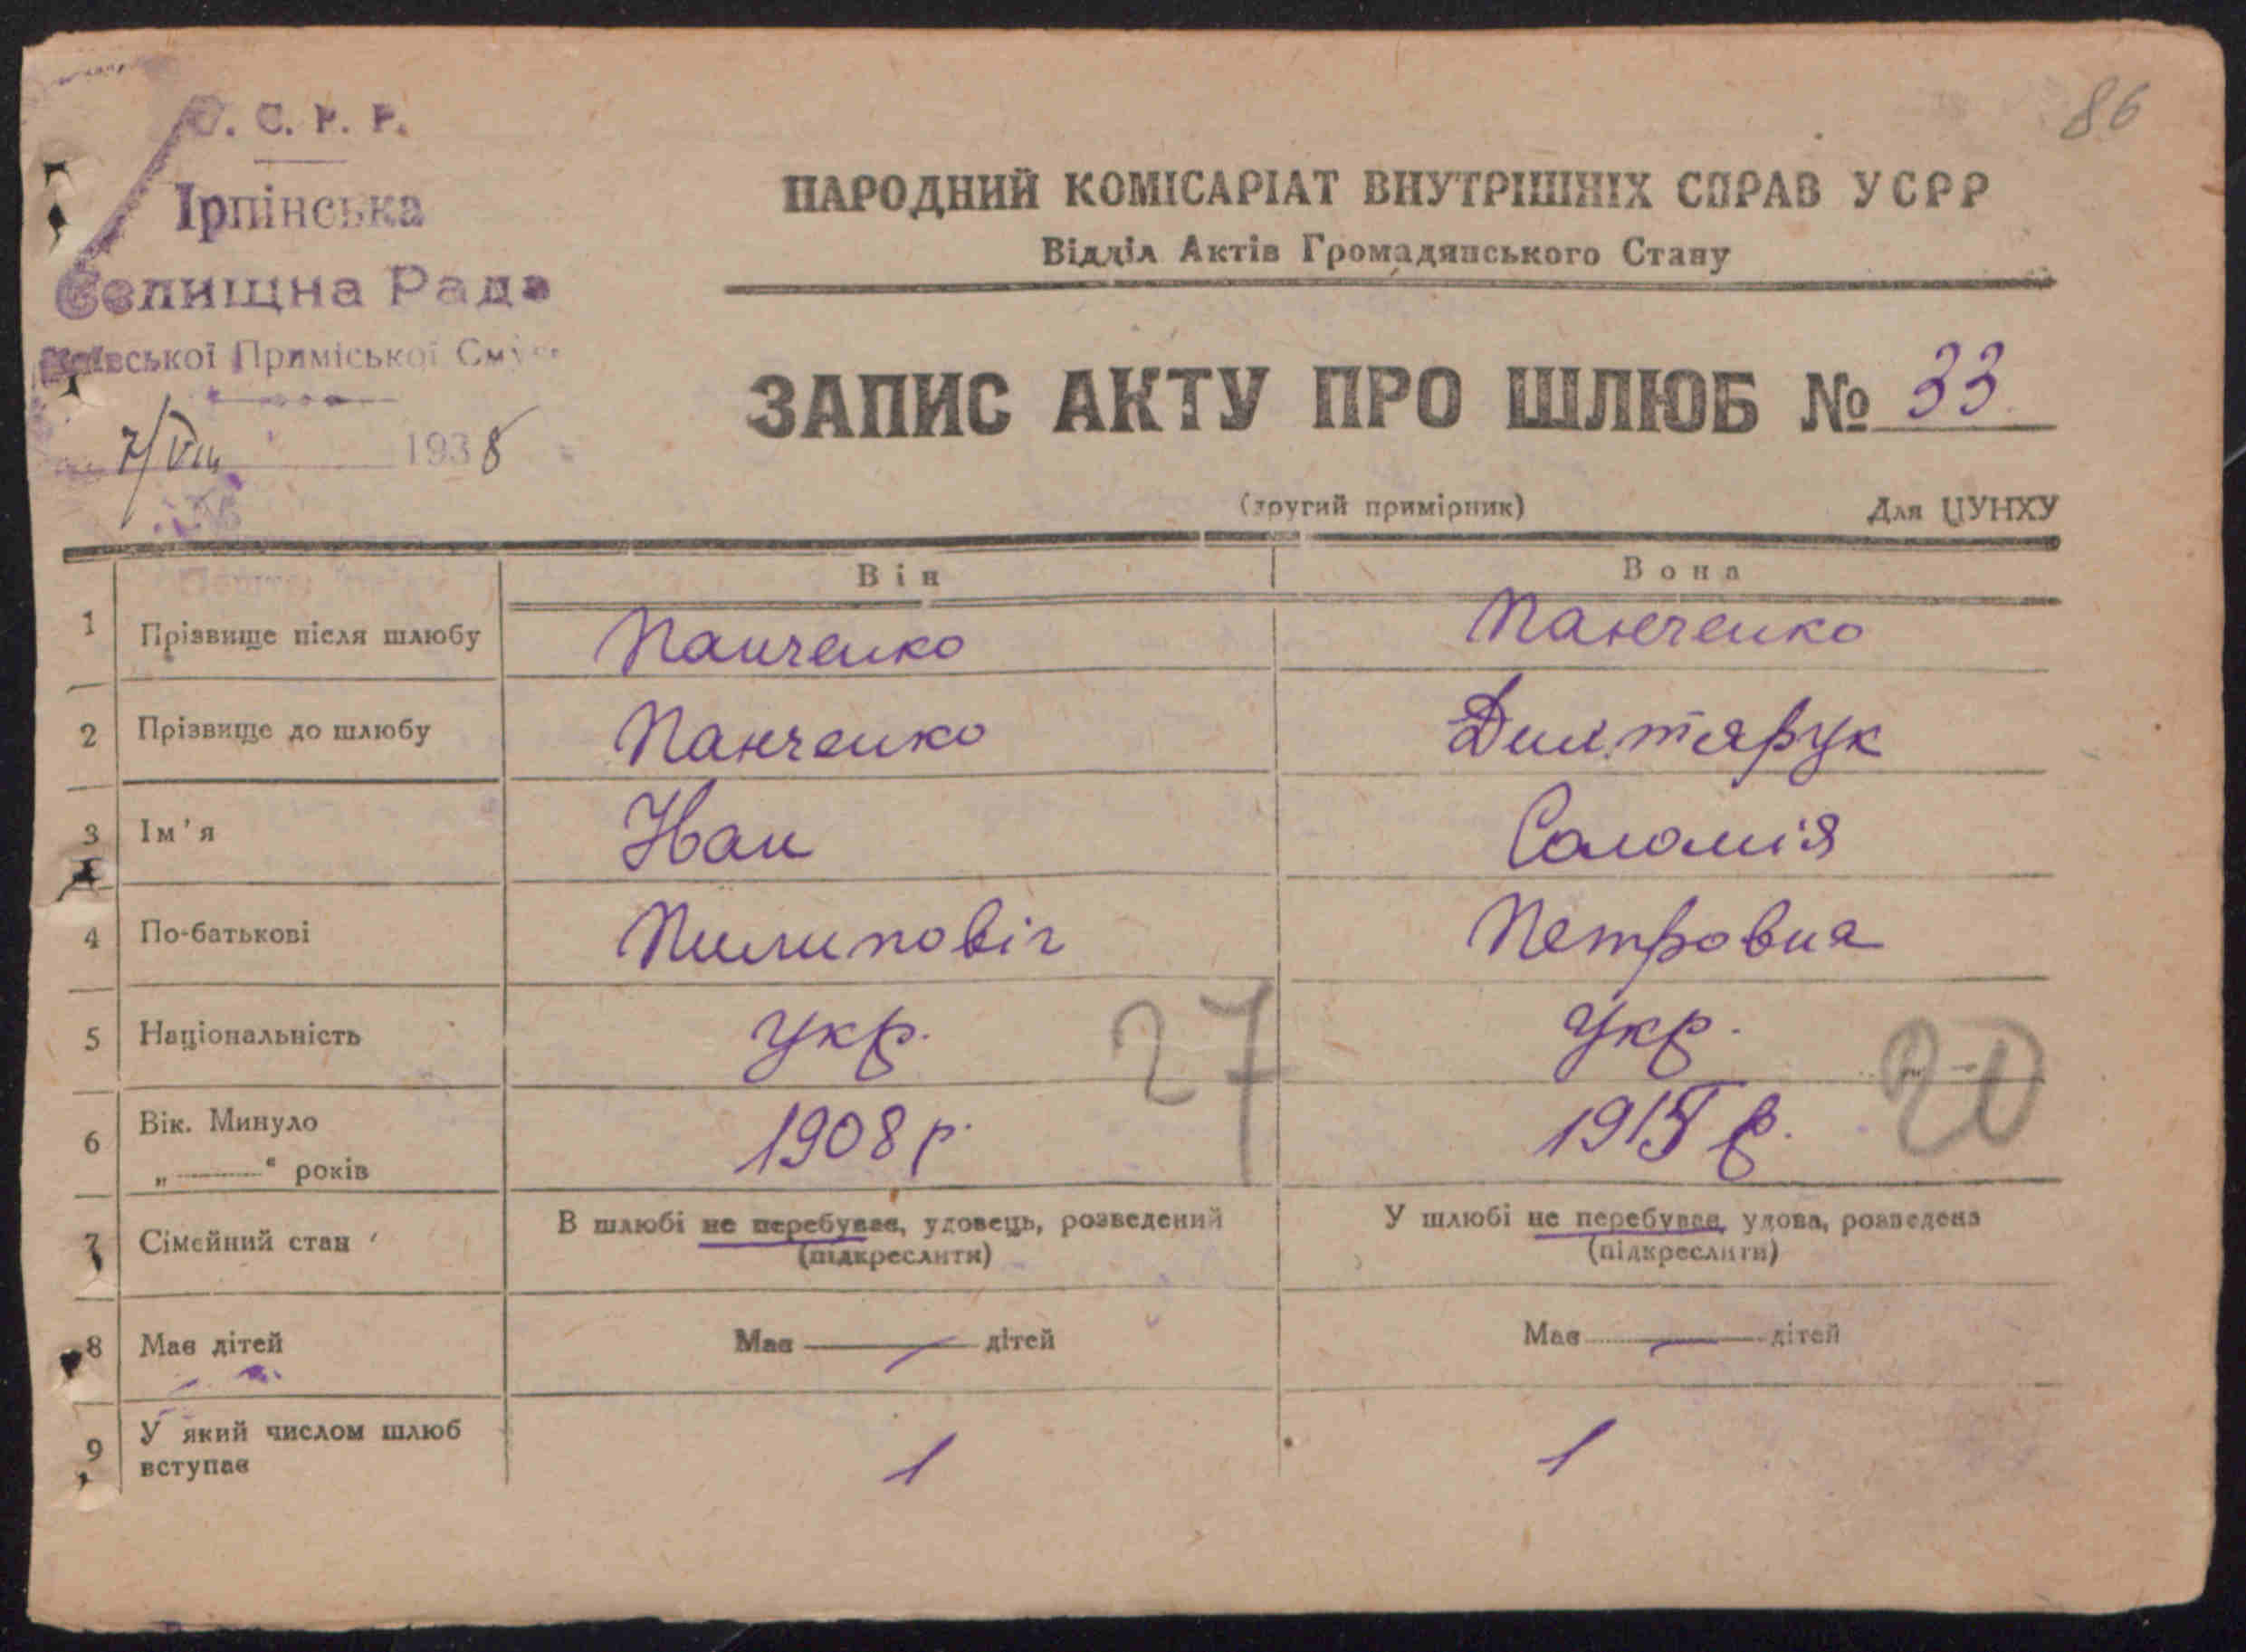 86
У. С. Р. Р.
Ірпінська
Селищна Рада
Київської Приміської Смуги
7/VIII 1938
НАРОДНИЙ КОМІСАРІАТ ВНУТРІШНІХ СПРАВ УСРР
Відділ Актів Громадянського Стану
ЗАПИС АКТУ ПРО ШЛЮБ № 33
(другий примірник) Для ЦУНХУ
Він Вона
1 Прізвище після шлюбу Панченко Панченко
2 Прізвище до шлюбу Панченко
3 Ім'я Иван Саломія
4 По-батькові Пилиповіч Петровна
5 Національність укр. укр.
27 20
6 Вік. Минуло
„ “ років 1908 р.
7 Сімейний стан В шлюбі не перебував, удовець, розведений У шлюбі не перебував, удова, розведена
(підкреслити) (підкреслити)
8 Має дітей Має — дітей Має — дітей
9 У який числом шлюб
вступає 1 1